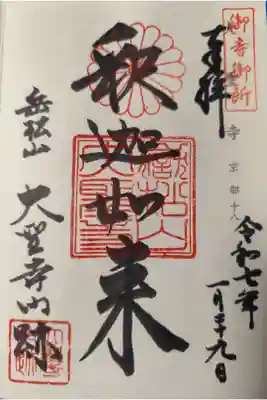 御寺御所
奉拝
寺 京都十八
令和七年
一月二十九日
釈迦如来
岳松山 大聖寺門跡